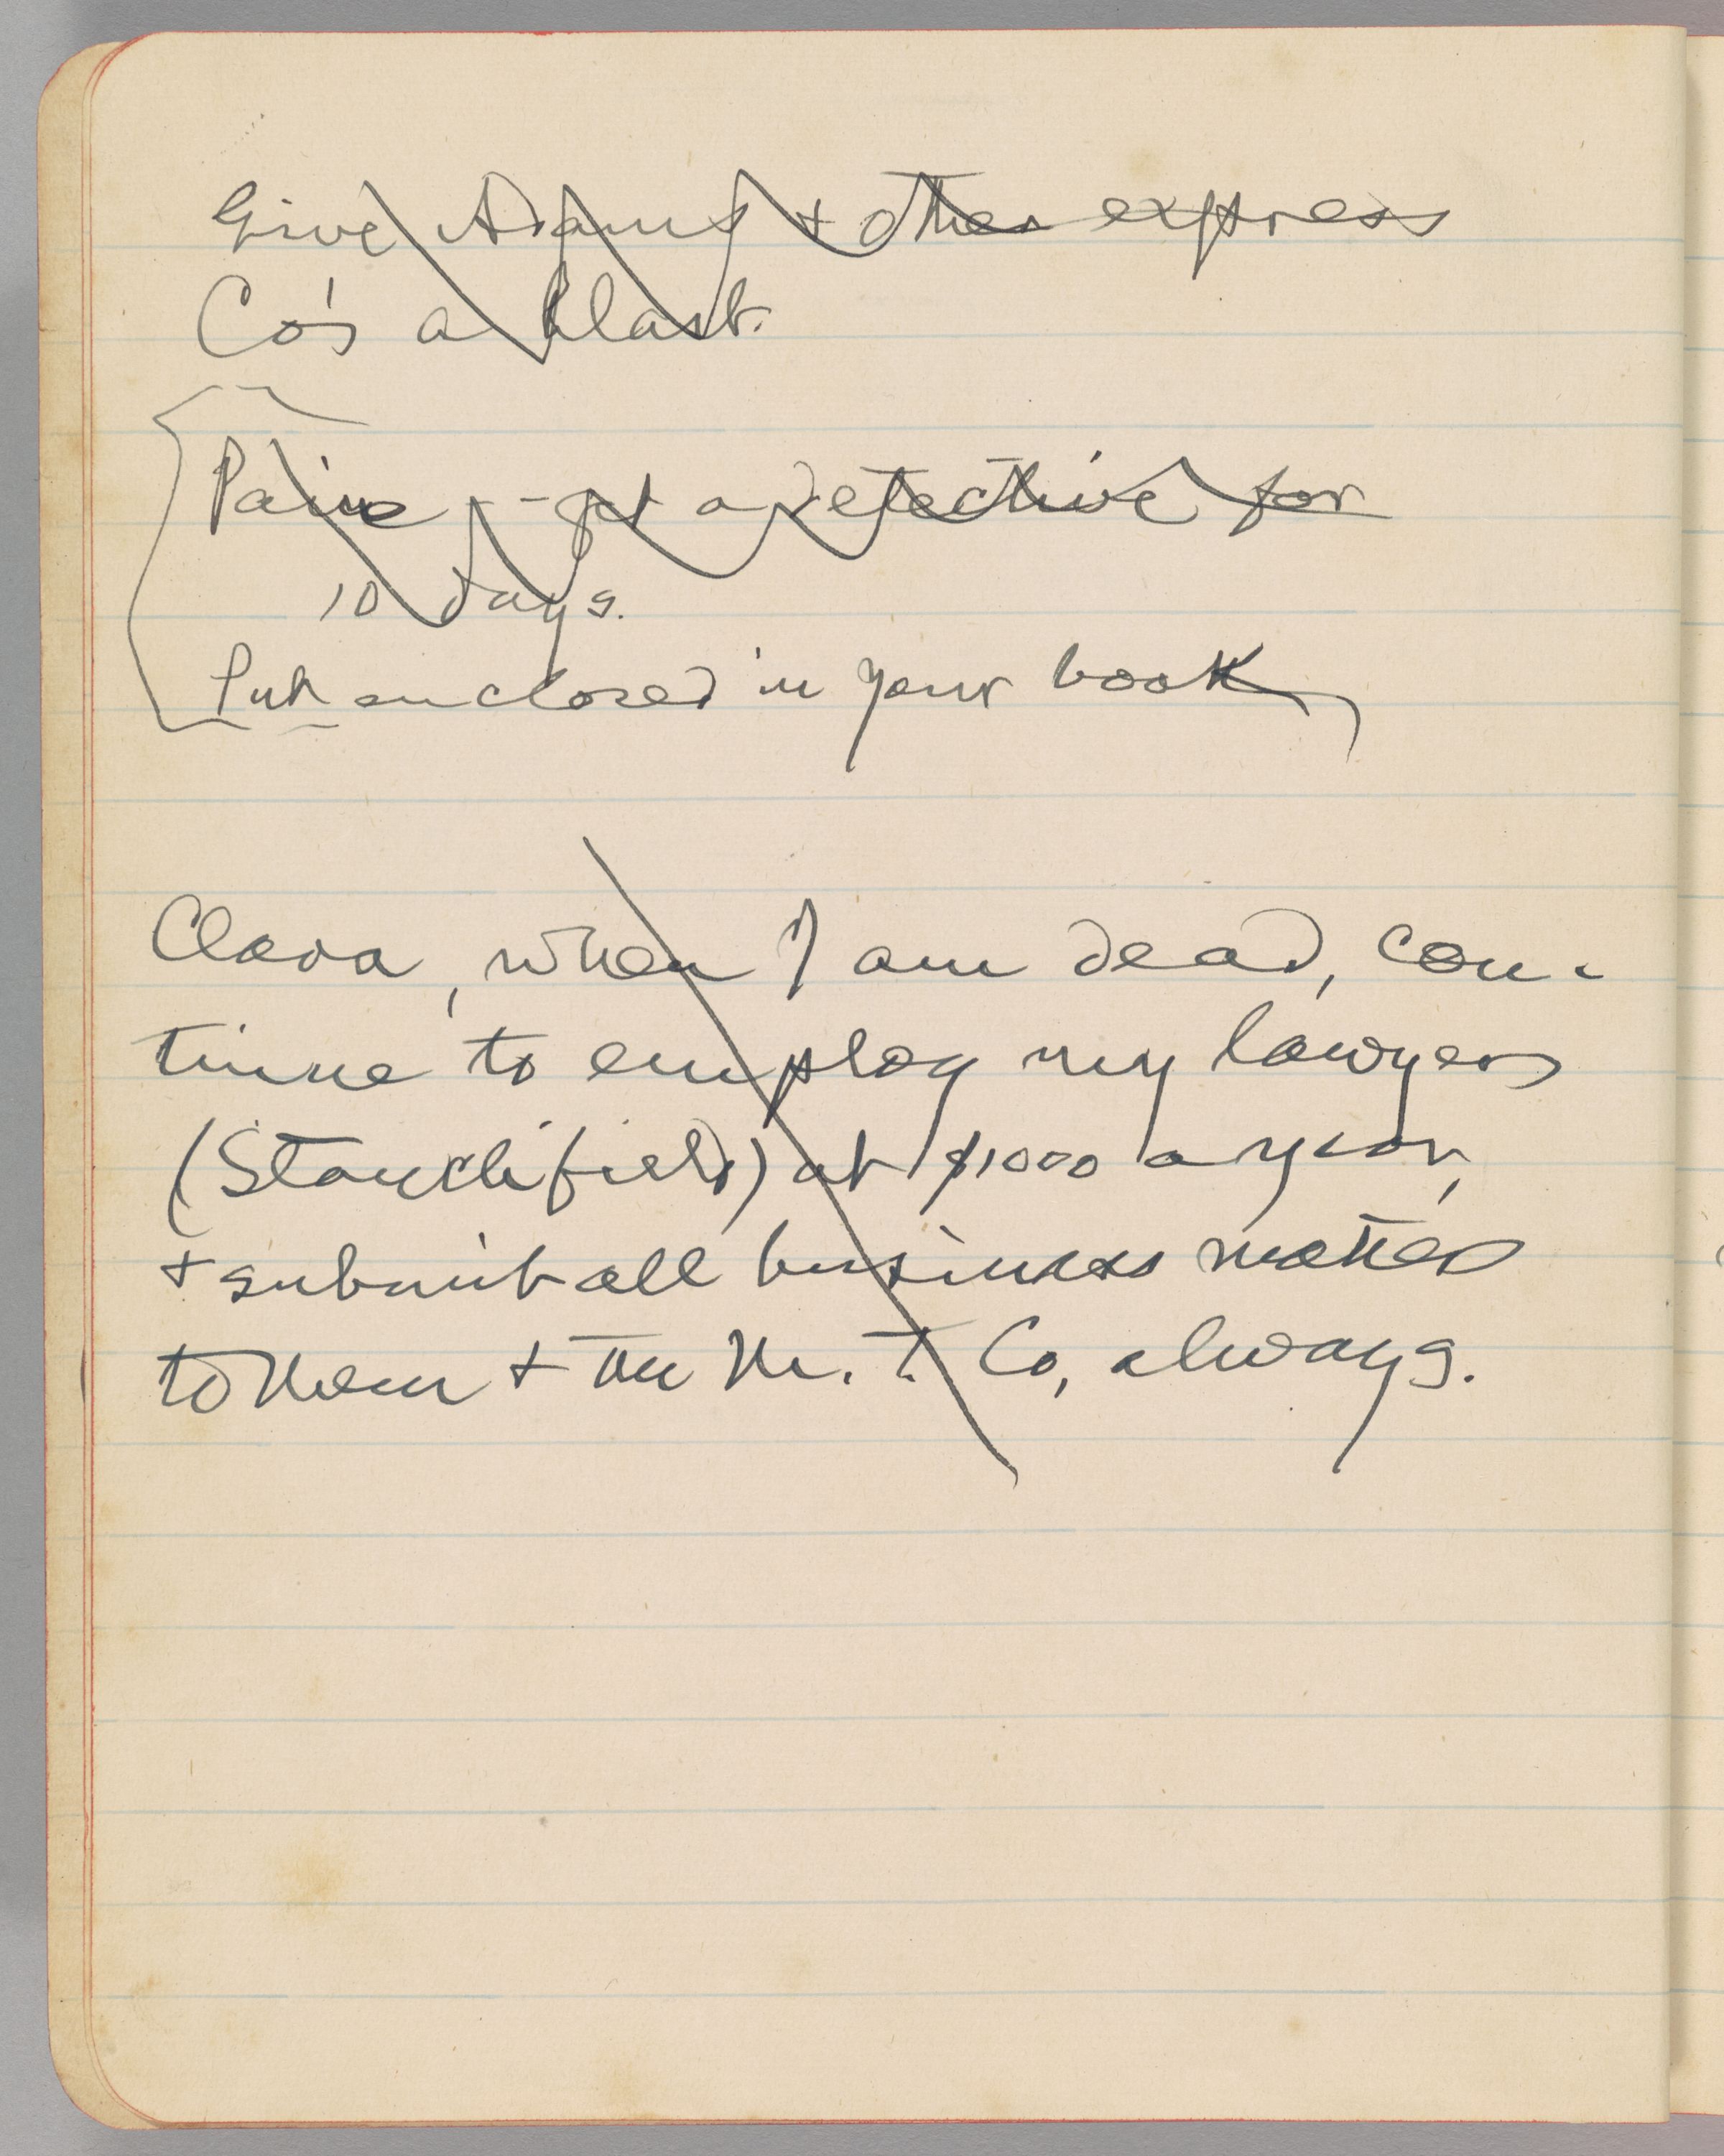 Give Adams & other express
Co's a blast.
Paine -- get a detective for
10 days.
Put enclosed in your book
Clara, when I am dead, con-
tinue to employ my lawyers
(Stanchfield) at $1000 a year,
& submit all business matters
to them & the M. T. Co, always.